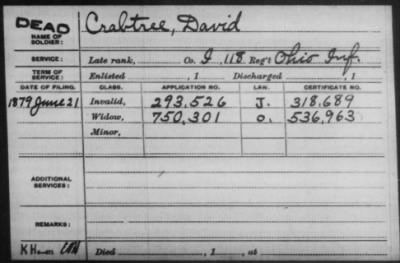 DEAD Crabtree, David
NAME OF SOLDIER:
SERVICE: Late rank, Co. I, 118 Reg't Ohio Inf.
TERM OF SERVICE: Enlisted , 1 Discharged , 1
DATE OF FILING. CLASS. APPLICATION NO. LAW. CERTIFICATE NO.
1879 June 21 Invalid, 293,526 J. 318,689
Widow, 750,301 O. 536,963
Minor,
ADDITIONAL SERVICES:
REMARKS:
Died , 1 , at